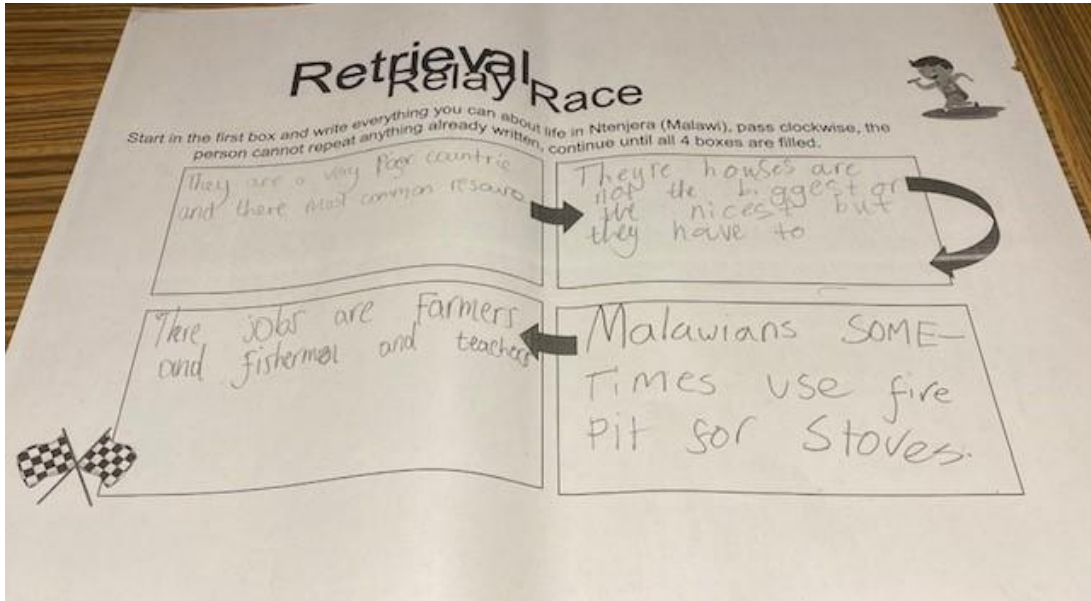 Retrieval
Relay Race
Start in the first box and write everything you can about life in Ntenjera (Malawi), pass clockwise, the
person cannot repeat anything already written, continue until all 4 boxes are filled.
They are a very Poor countrie
and there most common resourc
Theyre houses are
not the biggest or
the nicest but
they have to
There jobs are Farmers
and fishermen and teachers
Malawians SOME-
Times use fire
Pit for Stoves.